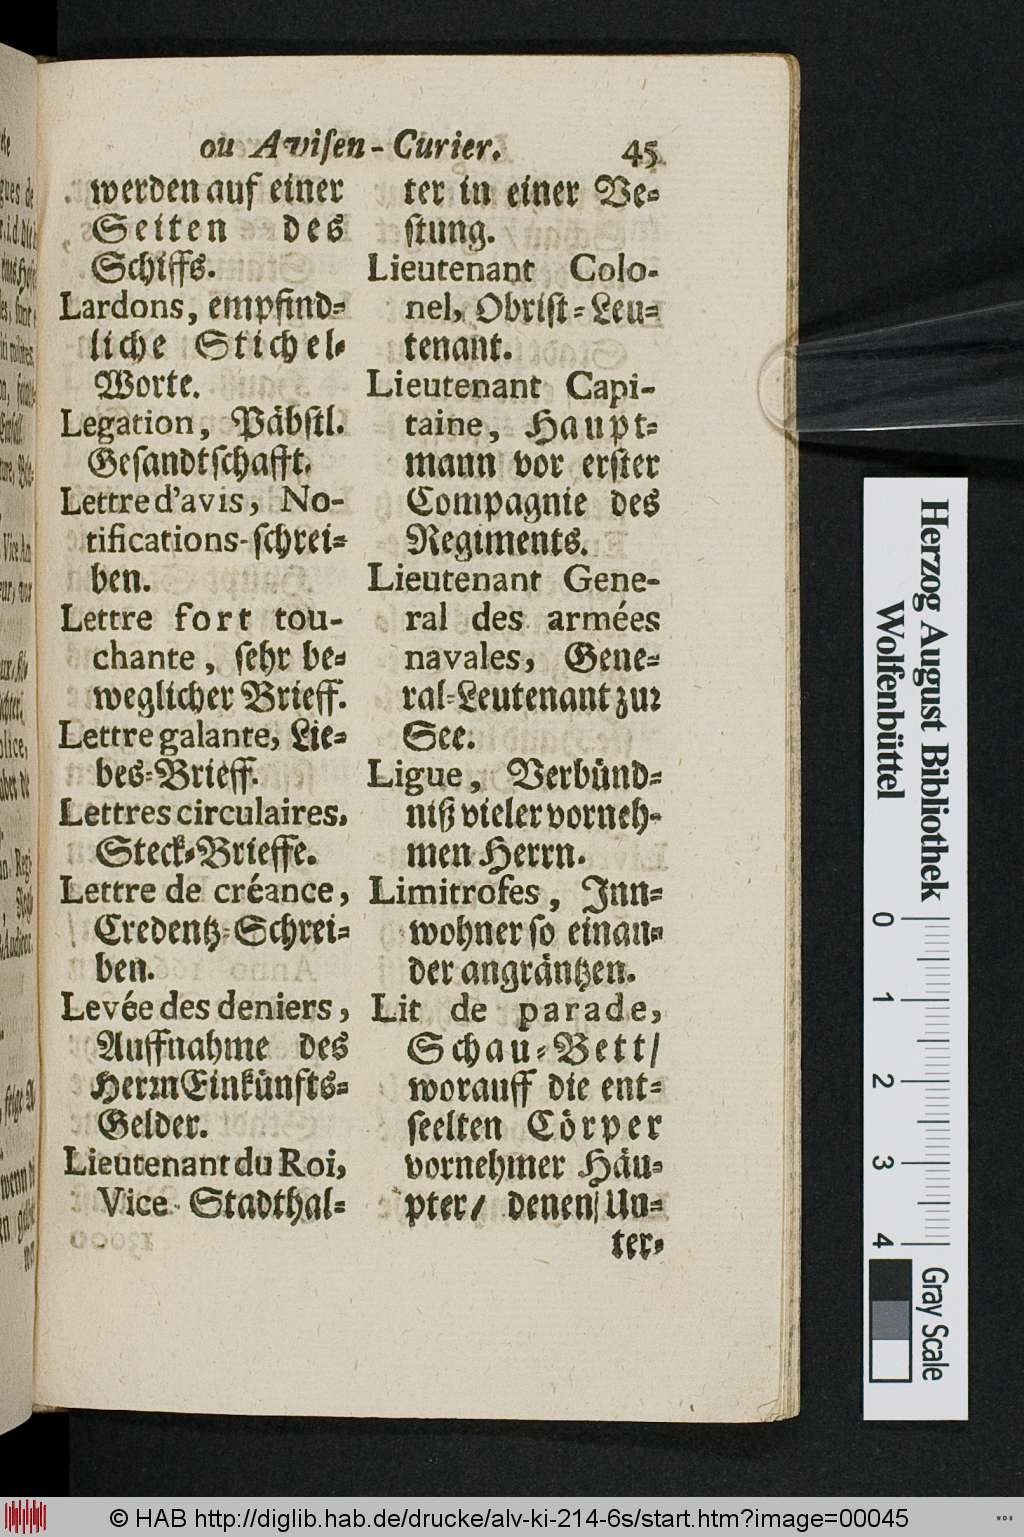 ou Aviſen-Curier. 45
werden auf einer
Seiten des
Schiffs.
Lardons, empfind-
liche Stichel-
Worte.
Legation, Päbſtl.
Geſandtſchafft.
Lettre d'avis, No-
tifications-ſchrei-
ben.
Lettre fort tou-
chante, ſehr be-
weglicher Brieff.
Lettre galante, Lie-
bes-Brieff.
Lettres circulaires,
Steck-Brieffe.
Lettre de créance,
Credentz-Schrei-
ben.
Levée des deniers,
Auffnahme des
Herrn Einkünfts-
Gelder.
Lieutenant du Roi,
Vice-Stadthal-
ter in einer Ve-
ſtung.
Lieutenant Colo-
nel, Obriſt-Leu-
tenant.
Lieutenant Capi-
taine, Haupt-
mann vor erſter
Compagnie des
Regiments.
Lieutenant Gene-
ral des armées
navales, Gene-
ral-Leutenant zur
See.
Ligue, Verbünd-
niß vieler vorneh-
men Herrn.
Limitrofes, Inn-
wohner ſo einan-
der angräntzen.
Lit de parade,
Schau-Bett/
worauff die ent-
ſeelten Cörper
vornehmer Häu-
pter/ denen Un-
ter-
Herzog August Bibliothek
Wolfenbüttel
0 1 2 3 4
Gray Scale
© HAB http://diglib.hab.de/drucke/alv-ki-214-6s/start.htm?image=00045